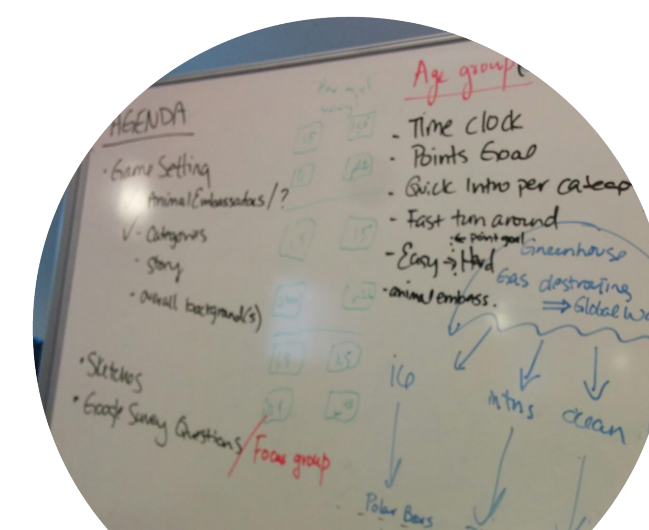 AGENDA
· Game Setting
Animal Embassadors/?
✓ - Categories
· Story
· overall background(s)
· Sketches
· Google Survey Questions
/ Focus group
Age group
- Time clock
- Points Goal
- Quick Intro per
- Fast turn around
point goal
- Easy → Hard
- animal embass.
Greenhouse
Gas destroying
⇒ Global
ice
mtns
ocean
Polar Bears